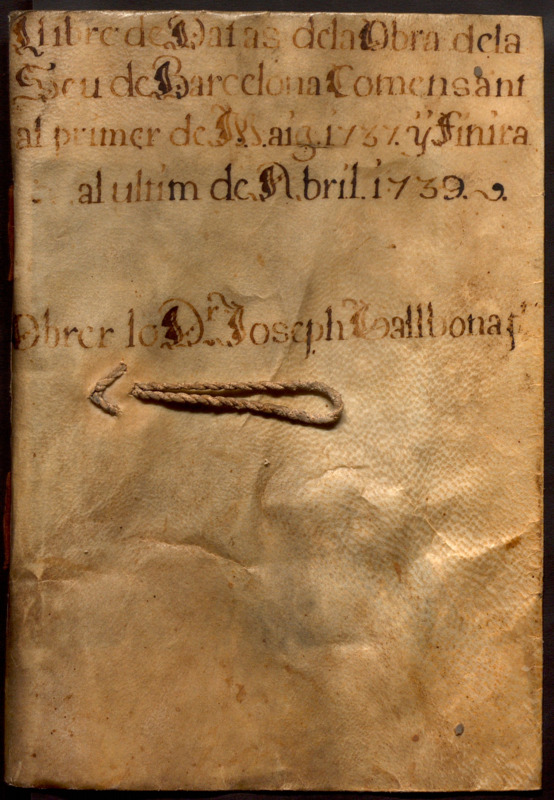 Llibre de Datas dela Obra dela
Seu de Barcelona Comensant
al primer de Maig. 1737. ÿ Finira
al ultim de Abril. 1739.
Obrer lo Dr. Joseph Vallbona